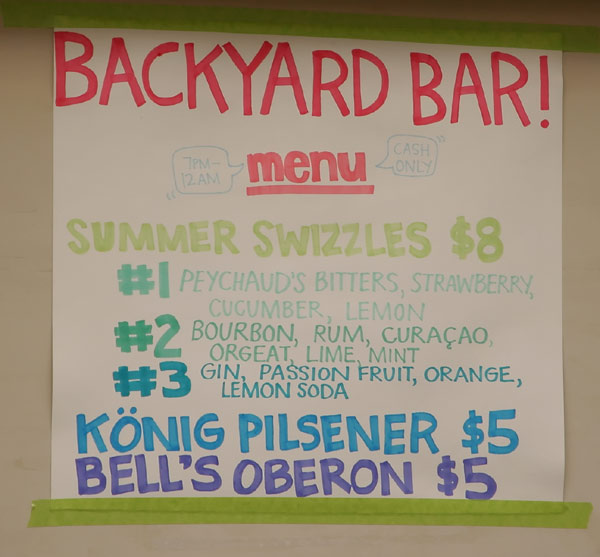 BACKYARD BAR!
7PM-
12AM
menu
CASH
ONLY
SUMMER SWIZZLES $8
#1 PEYCHAUD'S BITTERS, STRAWBERRY,
CUCUMBER, LEMON
#2 BOURBON, RUM, CURAÇAO,
ORGEAT, LIME, MINT
#3 GIN, PASSION FRUIT, ORANGE,
LEMON SODA
KÖNIG PILSENER $5
BELL'S OBERON $5